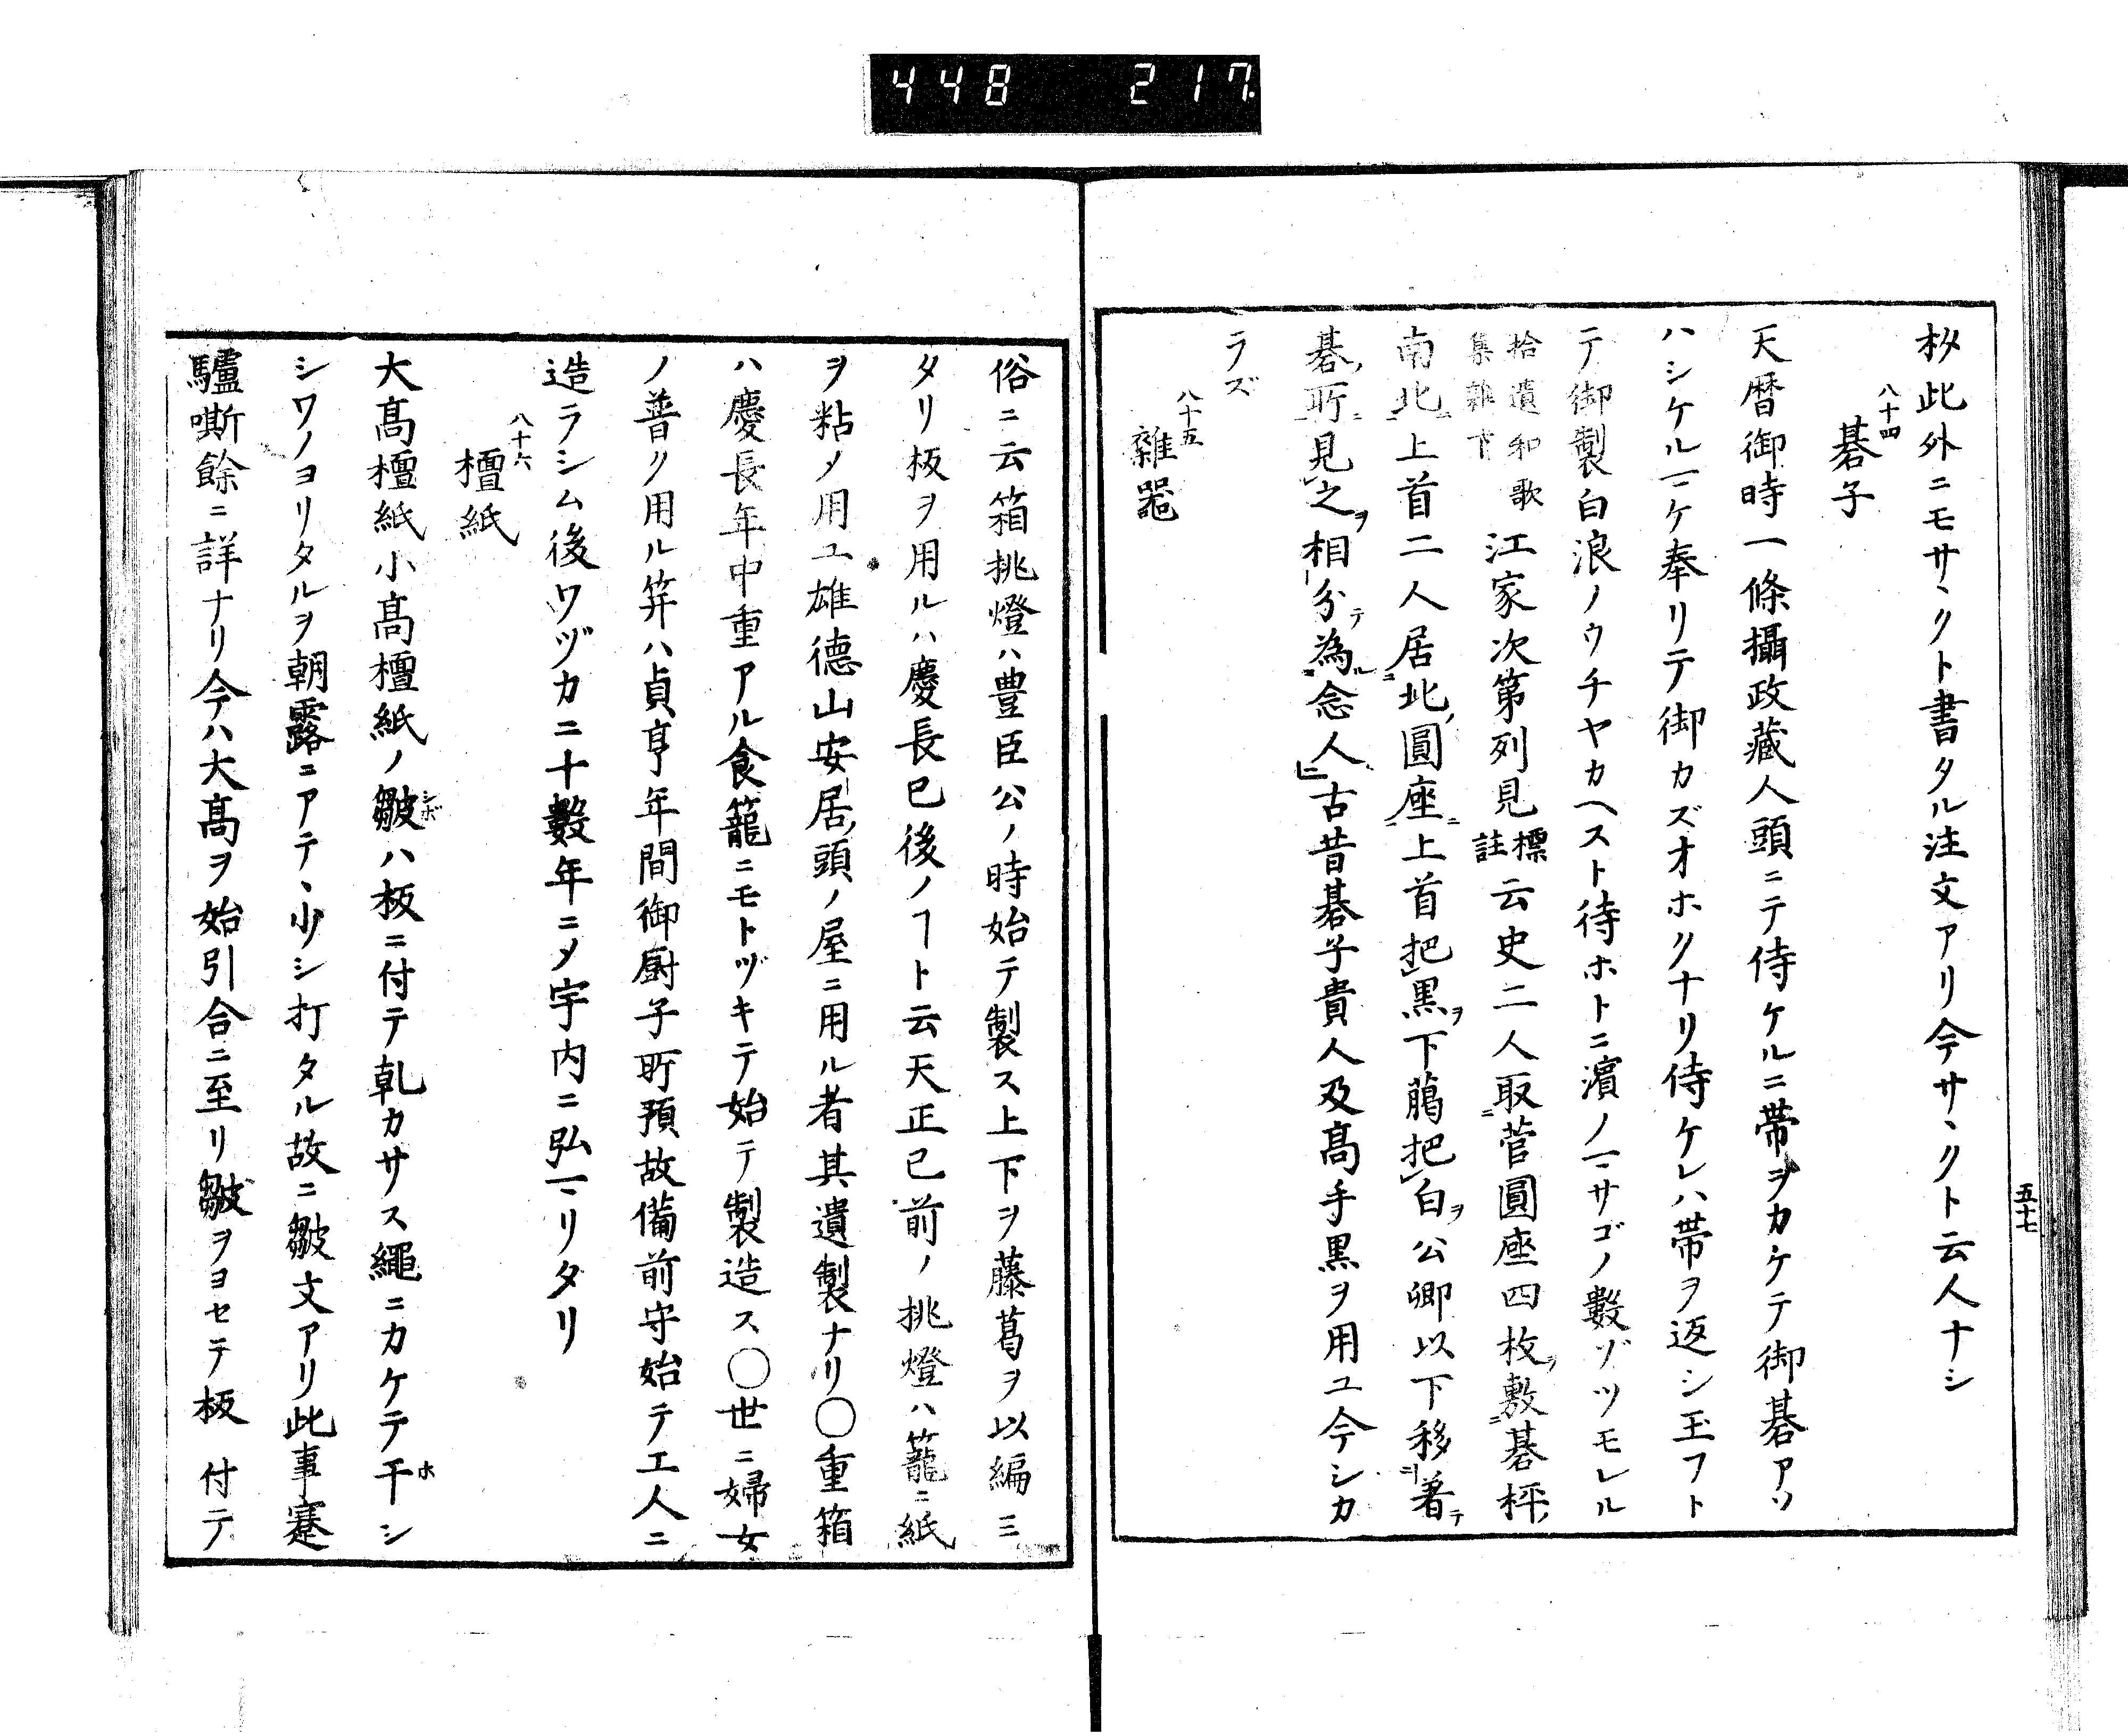 448 217
五十七
杪此外ニモサヽクト書タル注文アリ今サヽクト云人ナシ
八十四
碁子
天暦御時一條攝政藏人頭ニテ侍ケルニ帯ヲカケテ御碁アソ
ハシケルニマケ奉リテ御カズオホクナリ侍ケレハ帯ヲ返シ玉フト
テ御製白浪ノウチヤカヘスト待ホトニ濱ノマサゴノ數ゾツモレル
拾遺和歌
集雜下
江家次第列見標
註云史二人取菅圓座四枚敷碁枰
南北上首二人居北圓座上首把黒下﨟把白公卿以下移着
碁所見之相分為念人古昔碁子貴人及高手黒ヲ用ユ今シカ
ラズ
八十五
雜器
俗ニ云箱挑燈ハ豊臣公ノ時始テ製ス上下ヲ藤葛ヲ以編ミ
タリ板ヲ用ルハ慶長已後ノヿト云天正已前ノ挑燈ハ籠ニ紙
ヲ粘メ用ユ雄德山安居頭ノ屋ニ用ル者其遺製ナリ〇重箱
ハ慶長年中重アル食籠ニモトヅキテ始テ製造ス〇世ニ婦女
ノ普ク用ル笄ハ貞享年間御厨子所預故備前守始テ工人ニ
造ラシム後ワヅカ二十數年ニメ宇内ニ弘マリタリ
八十六
檀紙
大髙檀紙小髙檀紙ノ皺シボハ板ニ付テ乹カサス繩ニカケテ干ホシ
シワノヨリタルヲ朝露ニアテヽ少シ打タル故ニ皺文アリ此事蹇
驢嘶餘ニ詳ナリ今ハ大髙ヲ始引合ニ至リ皺ヲヨセテ板付テ